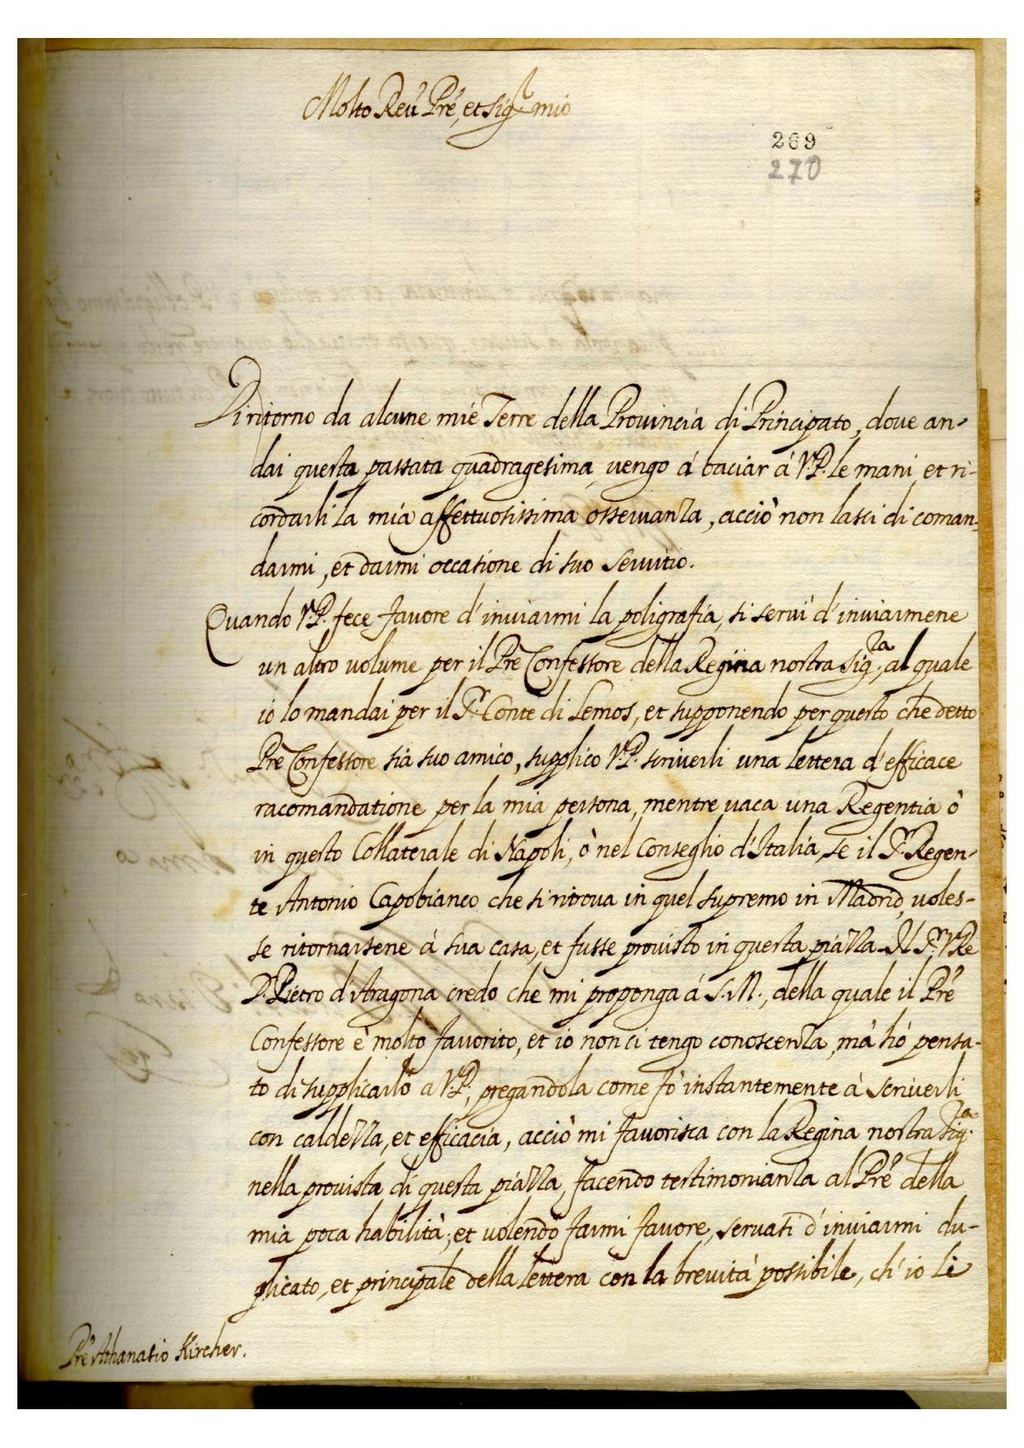 Molto Reu.º Prê, et sig.r mio
269
270
Di ritorno da alcune mie Terre della Prouincia di Principato, doue an-
dai questa passata quadragesima, uengo á baciar á V.P. le mani, et ri-
cordarli la mia affettuosissima osseruanza, acciò non lasci di coman-
darmi, et darmi occasione di suo seruitio.
Quando V.P. fece fauore d'inuiarmi la poligrafia, si seruì d'inuiarmene
un altro uolume per il Prê Confessore della Regina nostra Sig.ra, al quale
io lo mandai per il S.r Conte di Lemos, et supponendo per questo che detto
Prê Confessore sia suo amico, supplico V.P. scriuerli una lettera d'efficace
racomandatione per la mia persona, mentre uaca una Regentia ò
in questo Collaterale di Napoli, ò nel Conseglio d'Italia, se il S.r Regen-
te Antonio Capobianco che si ritroua in quel supremo in Madrid, uoles-
se ritornarsene á sua casa, et fusse prouisto in questa piazza. Il S.r V.Re
D. Pietro d'Aragona credo che mi proponga á S.M., della quale il Prê
Confessore è molto fauorito, et io non ci tengo conoscenza, mà hò pensa-
to di supplicarlo a V.P., pregandola come fò instantemente à scriuerli
con caldezza, et efficacia, acciò mi fauorisca con la Regina nostra Sig.ra
nella prouista di questa piazza, facendo testimonianza al Prê della
mia poca habilità; et uolendo farmi fauore, seruasi d'inuiarmi du-
plicato, et principale della lettera con la breuità possibile, ch'io li
Prê Athanasio Kircher.